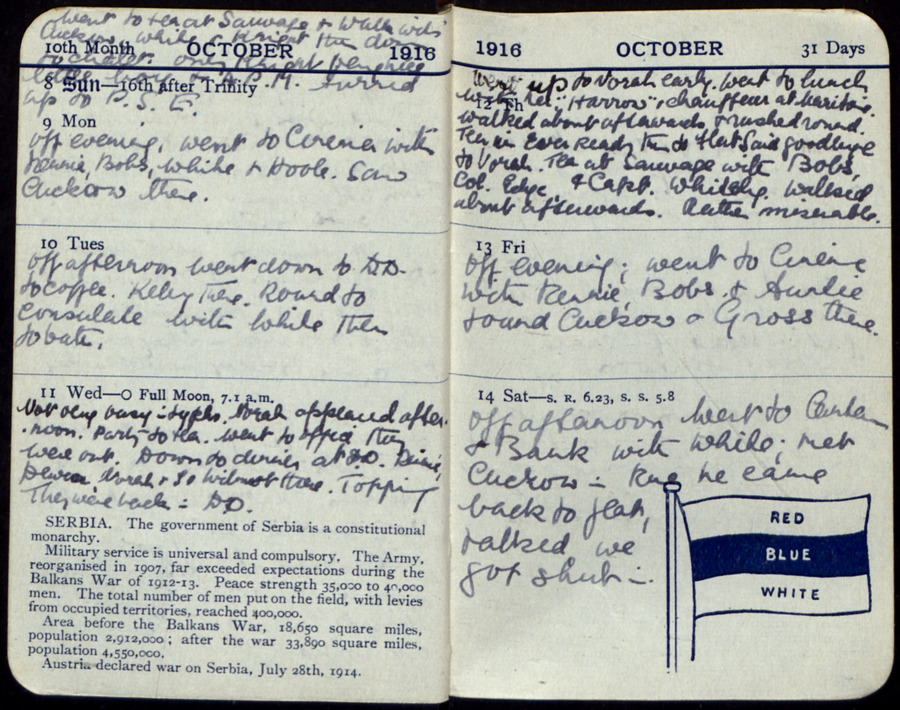 went to tea at Sauvage & walk with
Cuckow, White & Knight then do
10th Month OCTOBER 1916
to chalet. only Knight
up to P.S.E.
8 Sun—16th after Trinity
9 Mon
off evening, went to Cinema with
Rennie, Bobs, White & Hoole. Saw
Cuckow there.
10 Tues
off afternoon went down to D.D.
to coffee. Kelly there. Round to
Consulate with White then
to bath.
11 Wed—O Full Moon, 7.1 a.m.
Not very busy - Norah appeared after-
noon. Party to tea. went to office they
were out. Down to dinner at D.D.
Norah & So Wilmot there. Topping
They were back : DD.
SERBIA. The government of Serbia is a constitutional
monarchy.
Military service is universal and compulsory. The Army,
reorganised in 1907, far exceeded expectations during the
Balkans War of 1912-13. Peace strength 35,000 to 40,000
men. The total number of men put on the field, with levies
from occupied territories, reached 400,000.
Area before the Balkans War, 18,650 square miles,
population 2,912,000; after the war 33,890 square miles,
population 4,550,000.
Austria declared war on Serbia, July 28th, 1914.
1916 OCTOBER 31 Days
Went up to Norah early. went to lunch
with her. "Harrow" & chauffeur at
12 Th
walked about afterwards & rushed round.
Tea in Ever Ready then to flat Said goodbye
to Norah. Tea at Sauvage with Bobs,
Col. Edge, & Capt. Whiteley. walked
about afterwards. Rather miserable.
13 Fri
off evening; went to Cinema
with Rennie, Bobs, & Auntie
found Cuckow & Gross there.
14 Sat—S. R. 6.23, S. S. 5.8
off afternoon went to
& Bank with White; met
Cuckow - he came
back to flat,
talked we
got shut -.
RED
BLUE
WHITE